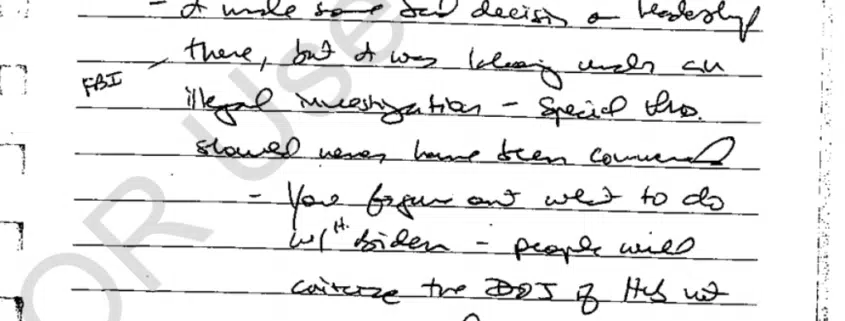 - I made some bad decisions on leadership
there, but I was laboring under an
FBI
illegal investigation - Special Pros.
should never have been commenced
- You figure out what to do
w/ H. Biden - people will
criticize the DOJ if He's not
OR Use